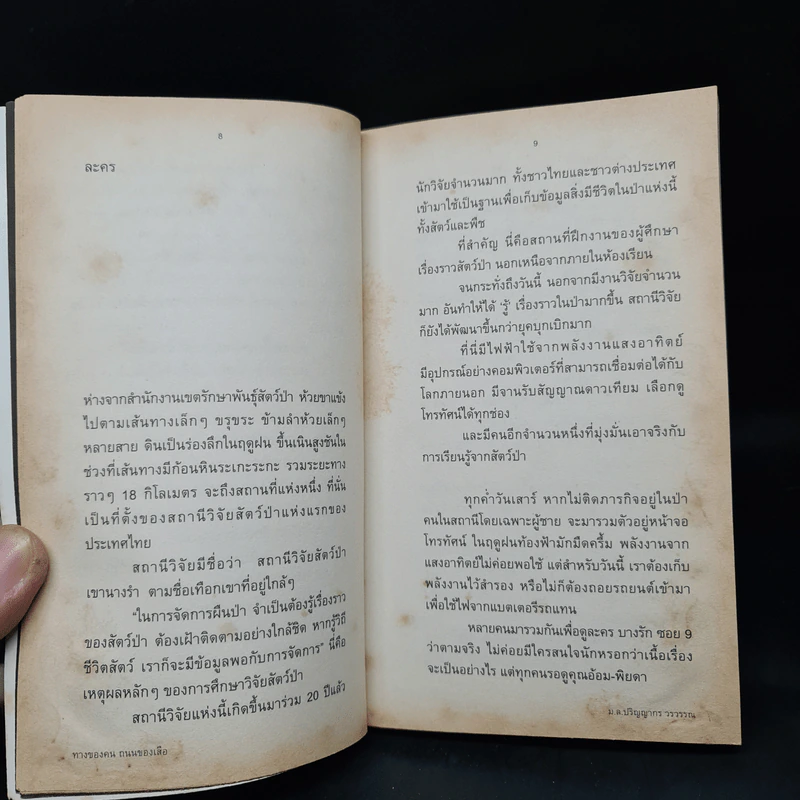 8
ละคร
ห่างจากสำนักงานเขตรักษาพันธุ์สัตว์ป่า ห้วยขาแข้ง
ไปตามเส้นทางเล็กๆ ขรุขระ ข้ามลำห้วยเล็กๆ
หลายสาย ดินเป็นร่องลึกในฤดูฝน ขึ้นเนินสูงชันใน
ช่วงที่เส้นทางมีก้อนหินระเกะระกะ รวมระยะทาง
ราวๆ 18 กิโลเมตร จะถึงสถานที่แห่งหนึ่ง ที่นั่น
เป็นที่ตั้งของสถานีวิจัยสัตว์ป่าแห่งแรกของ
ประเทศไทย
สถานีวิจัยมีชื่อว่า สถานีวิจัยสัตว์ป่า
เขานางรำ ตามชื่อเทือกเขาที่อยู่ใกล้ๆ
"ในการจัดการผืนป่า จำเป็นต้องรู้เรื่องราว
ของสัตว์ป่า ต้องเฝ้าติดตามอย่างใกล้ชิด หากรู้วิถี
ชีวิตสัตว์ เราก็จะมีข้อมูลพอกับการจัดการ" นี่คือ
เหตุผลหลักๆ ของการศึกษาวิจัยสัตว์ป่า
สถานีวิจัยแห่งนี้เกิดขึ้นมาร่วม 20 ปีแล้ว
ทางของคน ถนนของเสือ
9
นักวิจัยจำนวนมาก ทั้งชาวไทยและชาวต่างประเทศ
เข้ามาใช้เป็นฐานเพื่อเก็บข้อมูลสิ่งมีชีวิตในป่าแห่งนี้
ทั้งสัตว์และพืช
ที่สำคัญ นี่คือสถานที่ฝึกงานของผู้ศึกษา
เรื่องราวสัตว์ป่า นอกเหนือจากภายในห้องเรียน
จนกระทั่งถึงวันนี้ นอกจากมีงานวิจัยจำนวน
มาก อันทำให้ได้ 'รู้' เรื่องราวในป่ามากขึ้น สถานีวิจัย
ก็ยังได้พัฒนาขึ้นกว่ายุคบุกเบิกมาก
ที่นี่มีไฟฟ้าใช้จากพลังงานแสงอาทิตย์
มีอุปกรณ์อย่างคอมพิวเตอร์ที่สามารถเชื่อมต่อได้กับ
โลกภายนอก มีจานรับสัญญาณดาวเทียม เลือกดู
โทรทัศน์ได้ทุกช่อง
และมีคนอีกจำนวนหนึ่งที่มุ่งมั่นเอาจริงกับ
การเรียนรู้จากสัตว์ป่า
ทุกค่ำวันเสาร์ หากไม่ติดภารกิจอยู่ในป่า
คนในสถานีโดยเฉพาะผู้ชาย จะมารวมตัวอยู่หน้าจอ
โทรทัศน์ ในฤดูฝนท้องฟ้ามักมืดครึ้ม พลังงานจาก
แสงอาทิตย์ไม่ค่อยพอใช้ แต่สำหรับวันนี้ เราต้องเก็บ
พลังงานไว้สำรอง หรือไม่ก็ต้องถอยรถยนต์เข้ามา
เพื่อใช้ไฟจากแบตเตอรี่รถแทน
หลายคนมารวมกันเพื่อดูละคร บางรัก ซอย 9
ว่าตามจริง ไม่ค่อยมีใครสนใจนักหรอกว่าเนื้อเรื่อง
จะเป็นอย่างไร แต่ทุกคนรอดูคุณอ้อม-พิยดา
ม.ล.ปริญญากร วรวรรณ